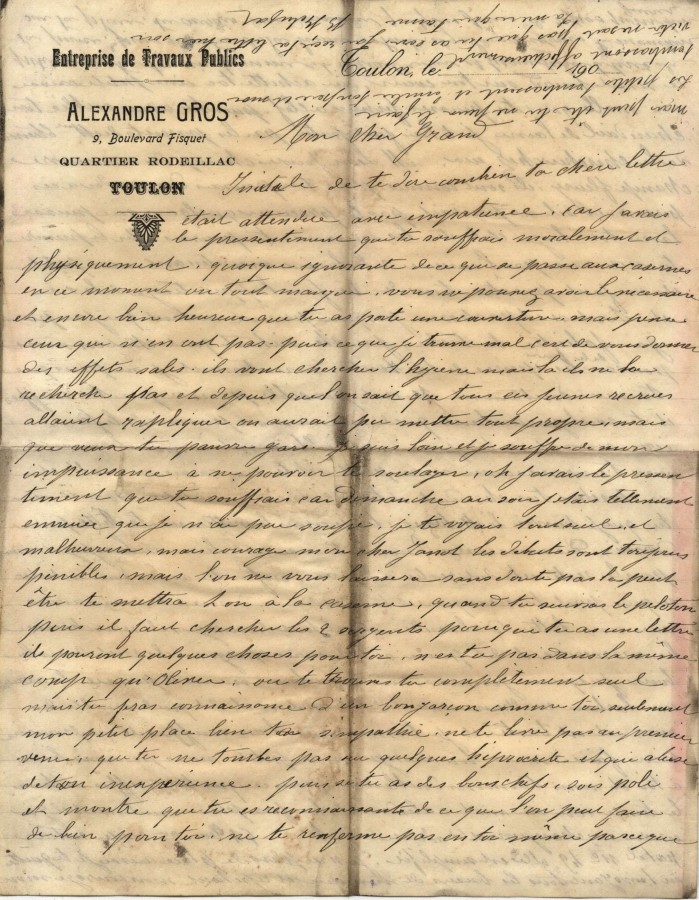 Entreprise de Travaux Publics
ALEXANDRE GROS
9, Boulevard Fisquet
QUARTIER RODEILLAC
TOULON
Toulon, le 190
Mon cher Grand
Inutile de te dire combien ta chere lettre
était attendue avec impatience, car j'avais
le pressentiment que tu souffrais moralement et
physiquement, quoique ignorante de ce que se passe aux casernes
en ce moment ou tout manque, vous ne pouvez avoir le nécessaire
et encore bien heureux que tu as porté une couverture, mais pense
ceux qui n'en ont pas. puis ce que je trouve mal c'est de vous donner
des effets sales. ils vont chercher l'hygiène mais la ils ne la
recherche pas et depuis que l'on sait que tous ces jeunes recrues
allaient rappliquer on aurait pu mettre tout propre, mais
que veux tu pauvre gars je suis loin et je souffre de mon
impuissance à ne pouvoir te soulager, oh j'avais le pressen
timent que tu souffrais car dimanche au soir j'étais tellement
ennuiée que je n'ai pas soupé, je te voyais tout seul, et
malheureux, mais courage mon cher Janot les débuts sont toujours
pénibles, mais l'on ne vous laissera sans doute pas la peut
être te mettra t on à la caserne, quand tu suivras le peloton
puis il faut chercher les 2 sergents pour que tu as une lettre
ils pouront quelques choses pour toi, n'es tu pas dans la même
comp qu'Olivier, ou te trouves tu complètement seul
mais tu pras connaissance d'un bon garçon comme toi, seulement
mon petit place bien ta simpathie, ne te livre pas au premier
venu, que tu ne tombes pas sur quelques hipocrite et que abuse
de ton inexpérience. puis si tu as des bons chefs, sois poli
et montre que tu es reconnaissant de ce que l'on peut faire
de bien pour toi, ne te renferme pas en toi même parce que